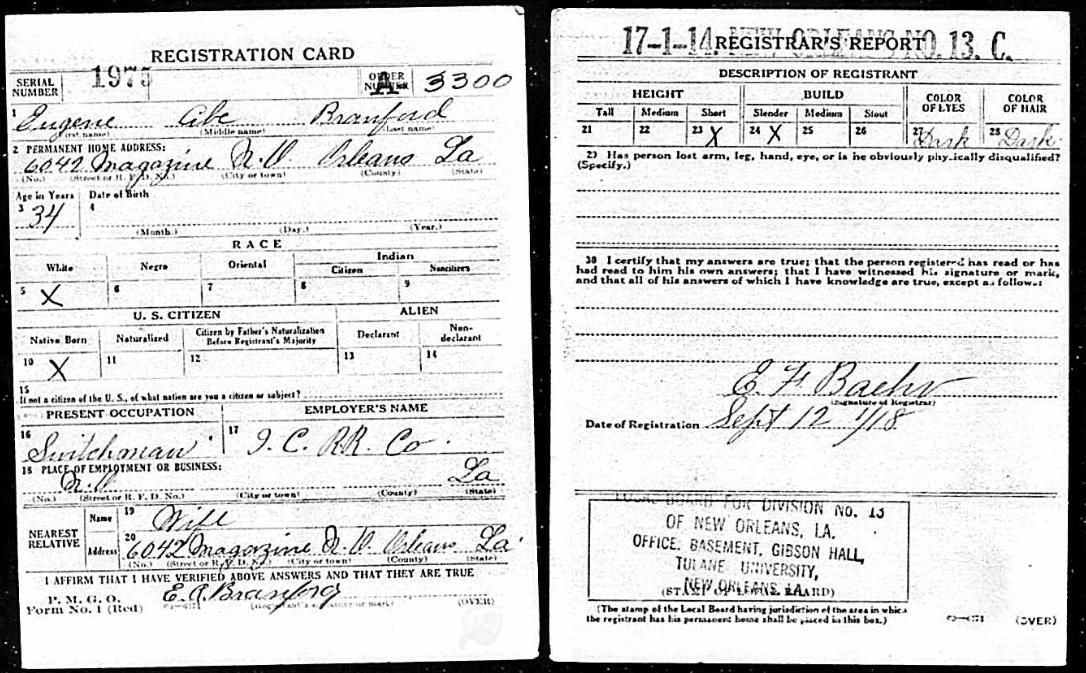 REGISTRATION CARD
SERIAL NUMBER 1975 ORDER NUMBER A 3300
1 Eugene Abe Branford
(First name) (Middle name) (Last name)
2 PERMANENT HOME ADDRESS:
6042 Magazine N.O. Orleans La
(No.) (Street or R. F. D. No.) (City or town) (County) (State)
Age in Years Date of Birth
3 34 4
(Month.) (Day.) (Year.)
RACE
White Negro Oriental Indian
Citizen Noncitizen
5 X 6 7 8 9
U. S. CITIZEN ALIEN
Native Born Naturalized Citizen by Father's Naturalization Before Registrant's Majority Declarant Non-declarant
10 X 11 12 13 14
15
If not a citizen of the U. S., of what nation are you a citizen or subject?
PRESENT OCCUPATION EMPLOYER'S NAME
16 Switchman 17 I. C. RR. Co.
18 PLACE OF EMPLOYMENT OR BUSINESS:
N.O. La
(No.) (Street or R. F. D. No.) (City or town) (County) (State)
NEAREST RELATIVE Name 19 Wife
Address 20 6042 Magazine N.O. Orleans La
(No.) (Street or R. F. D. No.) (City or town) (County) (State)
I AFFIRM THAT I HAVE VERIFIED ABOVE ANSWERS AND THAT THEY ARE TRUE
P. M. G. O.
Form No. 1 (Red) E. A. Branford
(Registrant's signature or mark) (OVER)
17-1-14. NEW ORLEANS NO. 13. C.
REGISTRAR'S REPORT
DESCRIPTION OF REGISTRANT
HEIGHT BUILD COLOR OF EYES COLOR OF HAIR
Tall Medium Short Slender Medium Stout
21 22 23 X 24 X 25 26 27 Dark 28 Dark
29 Has person lost arm, leg, hand, eye, or is he obviously physically disqualified?
(Specify.)
30 I certify that my answers are true; that the person registered has read or has
had read to him his own answers; that I have witnessed his signature or mark,
and that all of his answers of which I have knowledge are true, except as follows:
E. F. Baehr
(Signature of Registrar)
Date of Registration Sept 12 1/18
LOCAL BOARD FOR DIVISION No. 13
OF NEW ORLEANS, LA.
OFFICE: BASEMENT, GIBSON HALL,
TULANE UNIVERSITY,
NEW ORLEANS, LA.
(STAMP OF LOCAL BOARD)
(The stamp of the Local Board having jurisdiction of the area in which
the registrant has his permanent home shall be placed in this box.)
(OVER)